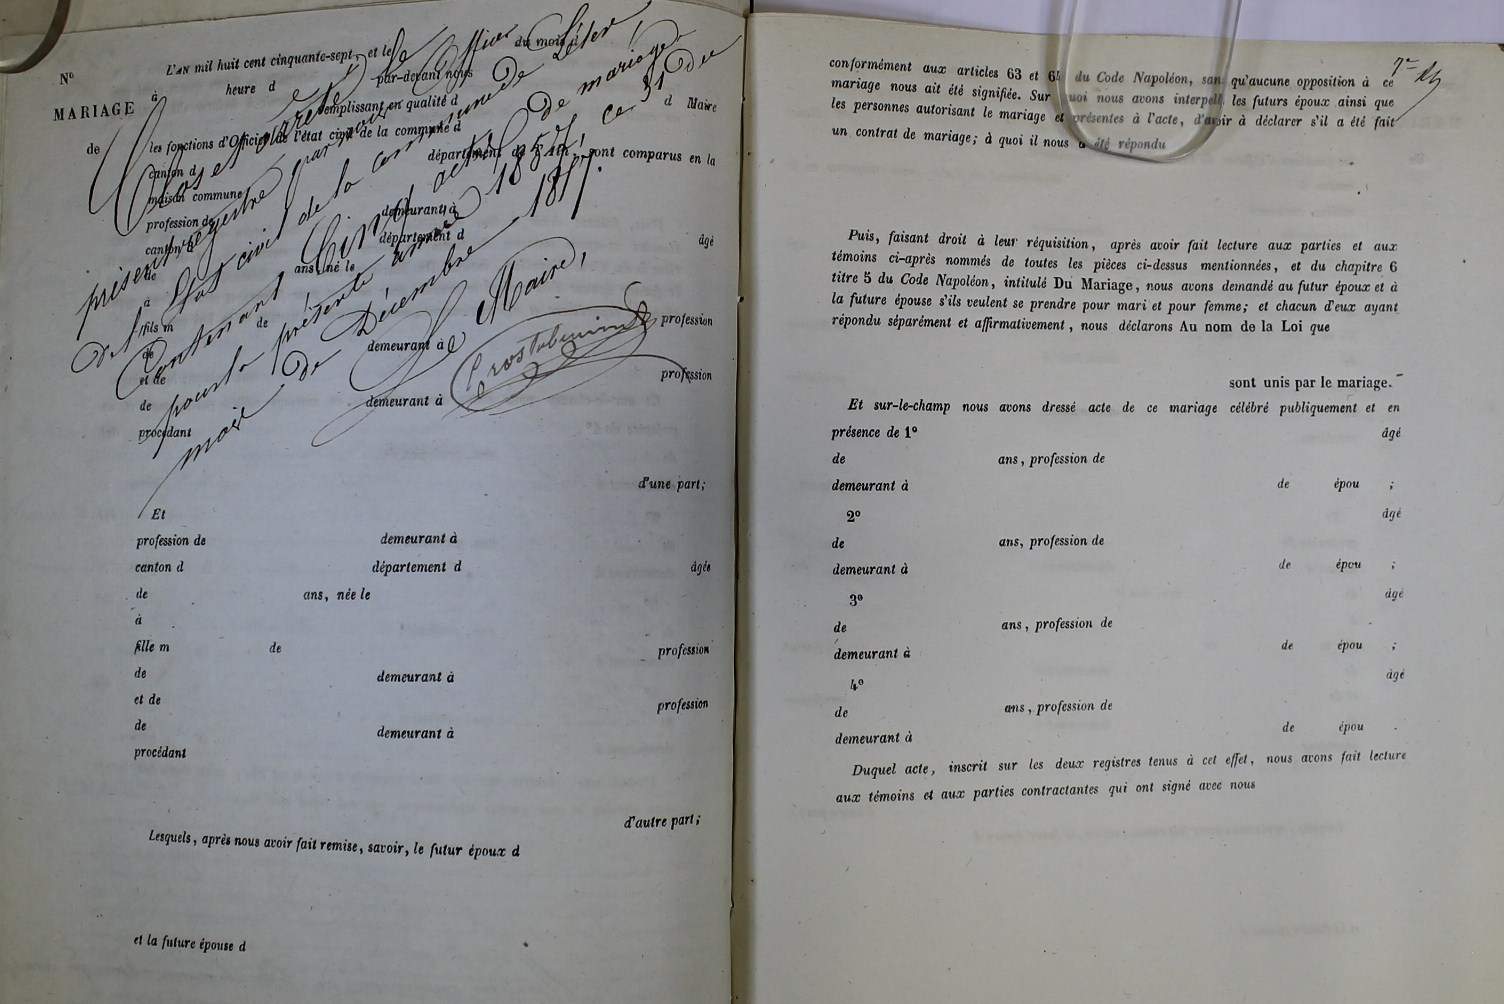 N°
MARIAGE
de
L'AN mil huit cent cinquante-sept, et le du mois d
à heure d par-devant nous
remplissant en qualité d d Maire
les fonctions d'Officier de l'état civil de la commune d
canton d département d sont comparus en la
maison commune
profession de demeurant à
canton d département d âgé
de ans, né le
à
fils m de profession
de demeurant à
et de profession
de demeurant à
procédant
d'une part;
Et
profession de demeurant à
canton d département d âgée
de ans, née le
à
fille m de profession
de demeurant à
et de profession
de demeurant à
procédant
d'autre part;
Lesquels, après nous avoir fait remise, savoir, le futur époux d
et la future épouse d
Clos et arrêté le
présent registre par nous Officier
de l'état civil de la commune de
Contenant Cinq actes de mariage
pour la présente année 1857, ce 31 du
mois de Décembre 1857.
Le Maire,
conformément aux articles 63 et 64 du Code Napoléon, sans qu'aucune opposition à ce
mariage nous ait été signifiée. Sur quoi nous avons interpellé les futurs époux ainsi que
les personnes autorisant le mariage et présentes à l'acte, d'avoir à déclarer s'il a été fait
un contrat de mariage; à quoi il nous a été répondu
Puis, faisant droit à leur réquisition, après avoir fait lecture aux parties et aux
témoins ci-après nommés de toutes les pièces ci-dessus mentionnées, et du chapitre 6
titre 5 du Code Napoléon, intitulé Du Mariage, nous avons demandé au futur époux et à
la future épouse s'ils veulent se prendre pour mari et pour femme; et chacun d'eux ayant
répondu séparément et affirmativement, nous déclarons Au nom de la Loi que
sont unis par le mariage.
Et sur-le-champ nous avons dressé acte de ce mariage célébré publiquement et en
présence de 1° âgé
de ans, profession de
demeurant à de épou ;
2° âgé
de ans, profession de
demeurant à de épou ;
3° âgé
de ans, profession de
demeurant à de épou ;
4° âgé
de ans, profession de
demeurant à de épou .
Duquel acte, inscrit sur les deux registres tenus à cet effet, nous avons fait lecture
aux témoins et aux parties contractantes qui ont signé avec nous